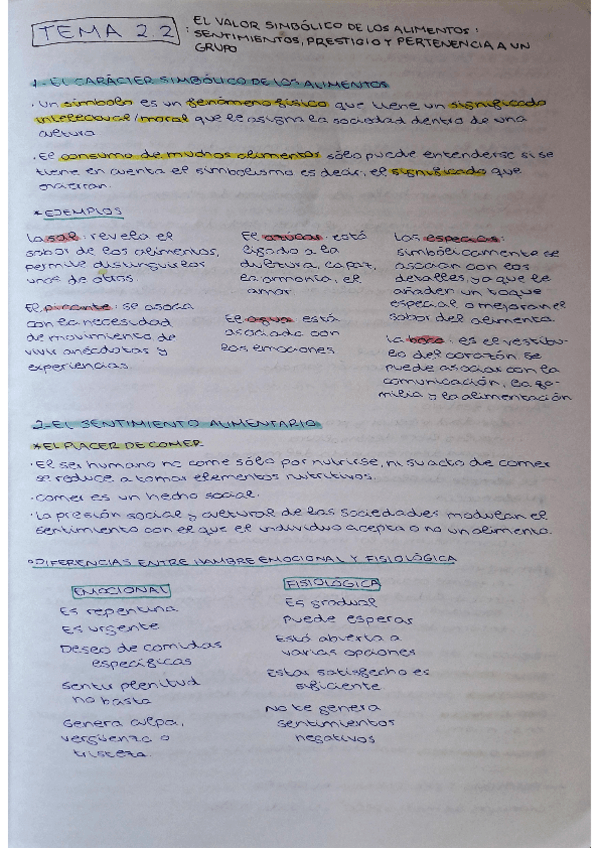 TEMA 2.2 : EL VALOR SIMBÓLICO DE LOS ALIMENTOS :
SENTIMIENTOS, PRESTIGIO Y PERTENENCIA A UN
GRUPO
1- EL CARÁCTER SIMBÓLICO DE LOS ALIMENTOS
· Un símbolo es un fenómeno físico que tiene un significado
intelectual/moral que le asigna la sociedad dentro de una
cultura
· El consumo de muchos alimentos sólo puede entenderse si se
tiene en cuenta el simbolismo es decir, el significado que
encierran.
* EJEMPLOS
La sal: revela el
sabor de los alimentos,
permite distinguirlos
unos de otros.
El picante: se asocia
con la necesidad
de movimiento de
vivir anécdotas y
experiencias.
El azúcar: está
ligado a la
dulzura, la paz,
la armonía, el
amor
El agua está
asociada con
las emociones
Las especias:
simbólicamente se
asocian con los
detalles, ya que le
añaden un toque
especial o mejoran el
sabor del alimento.
La boca: es el vestíbu-
lo del corazón se
puede asociar con la
comunicación, la fa-
milia y la alimentación
2- EL SENTIMIENTO ALIMENTARIO
* EL PLACER DE COMER
· El ser humano no come sólo por nutrirse, ni su acto de comer
se reduce a tomar elementos nutritivos.
· Comer es un hecho social.
· La presión social y cultural de las sociedades modulan el
sentimiento con el que el individuo acepta o no un alimento.
* DIFERENCIAS ENTRE HAMBRE EMOCIONAL Y FISIOLÓGICA
EMOCIONAL
Es repentina
Es urgente
Deseo de comidas
específicas
Sentir plenitud
no basta
Genera culpa,
vergüenza o
tristeza
FISIOLÓGICA
Es gradual
Puede esperar
Está abierta a
varias opciones
Estar satisfecho es
suficiente
No te genera
sentimientos
negativos